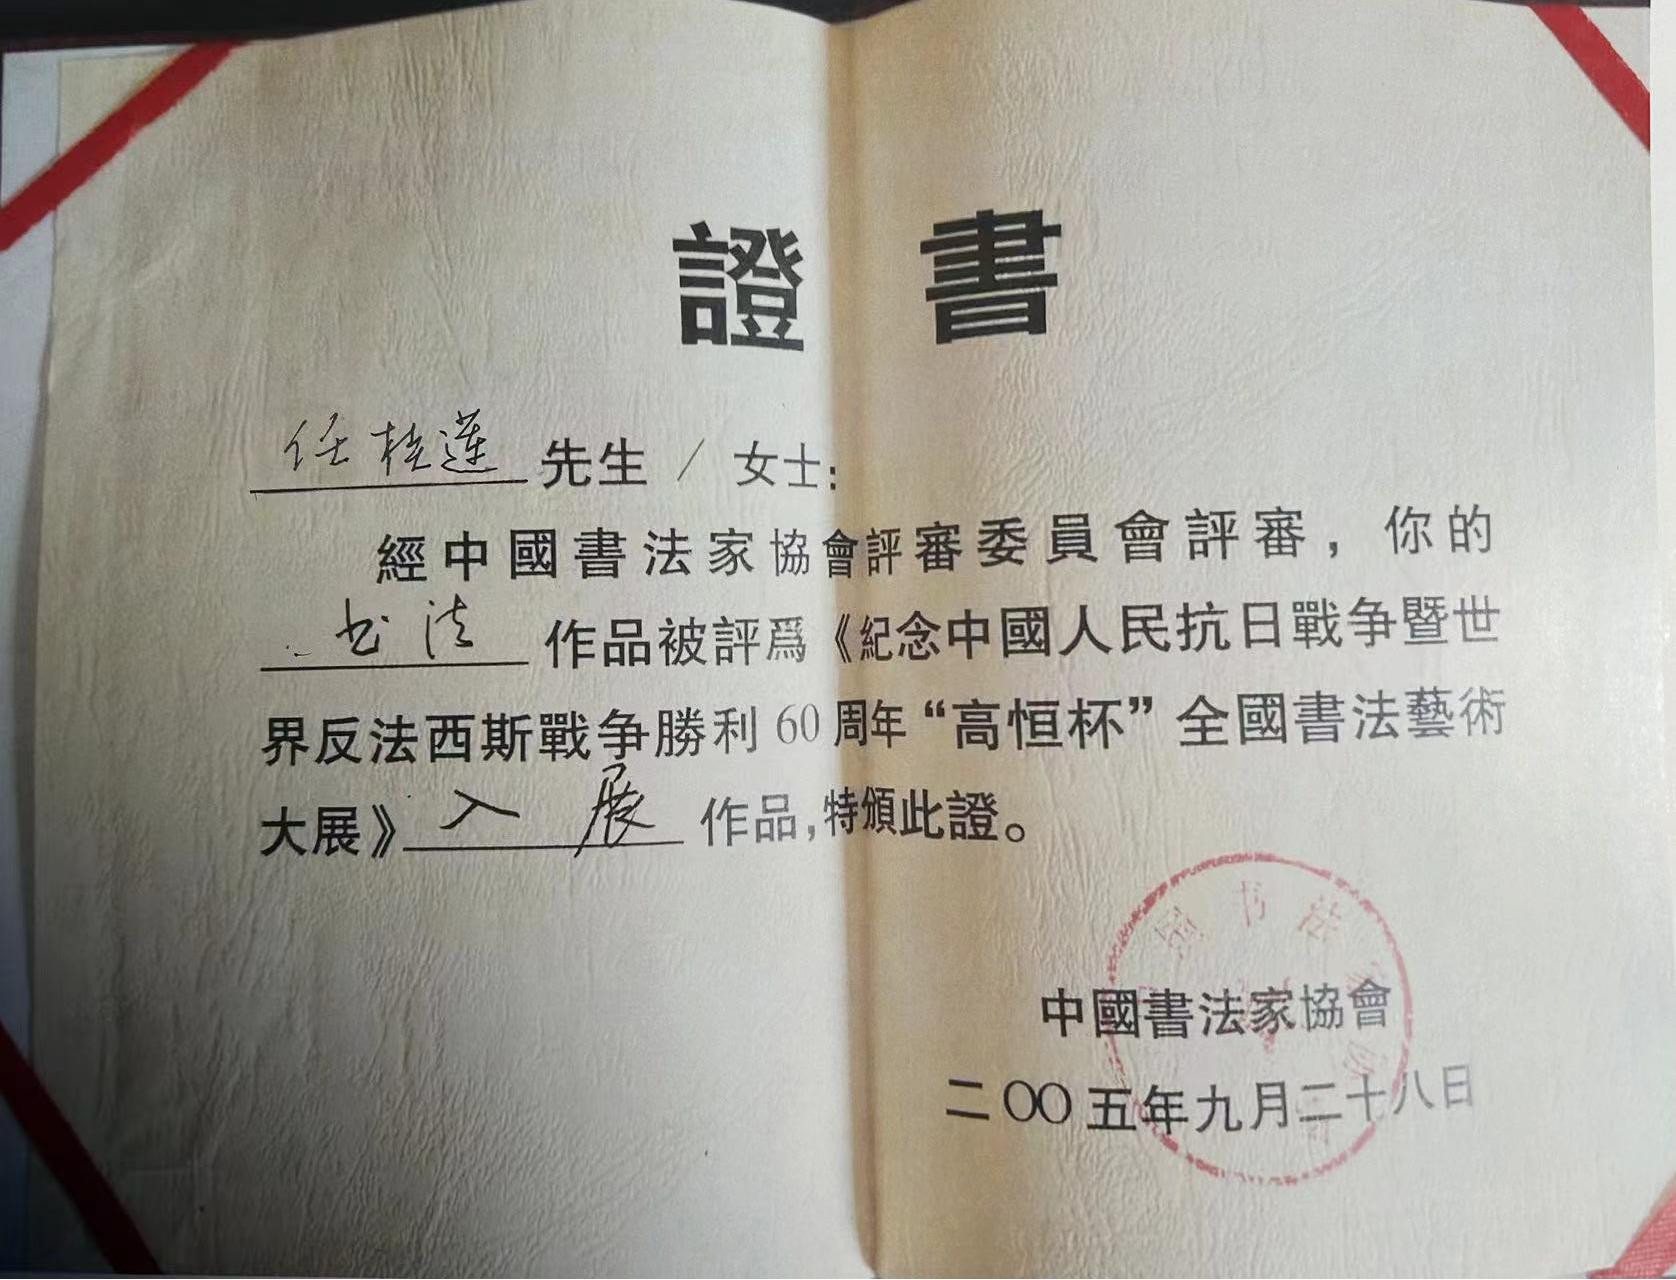 證書
任桂蓮 先生 / 女士:
經中國書法家協會評審委員會評審，你的
书法 作品被評爲《紀念中國人民抗日戰争暨世
界反法西斯戰争勝利60周年“高恒杯”全國書法藝術
大展》入展 作品,特頒此證。
国书法家
中國書法家協會
二〇〇五年九月二十八日